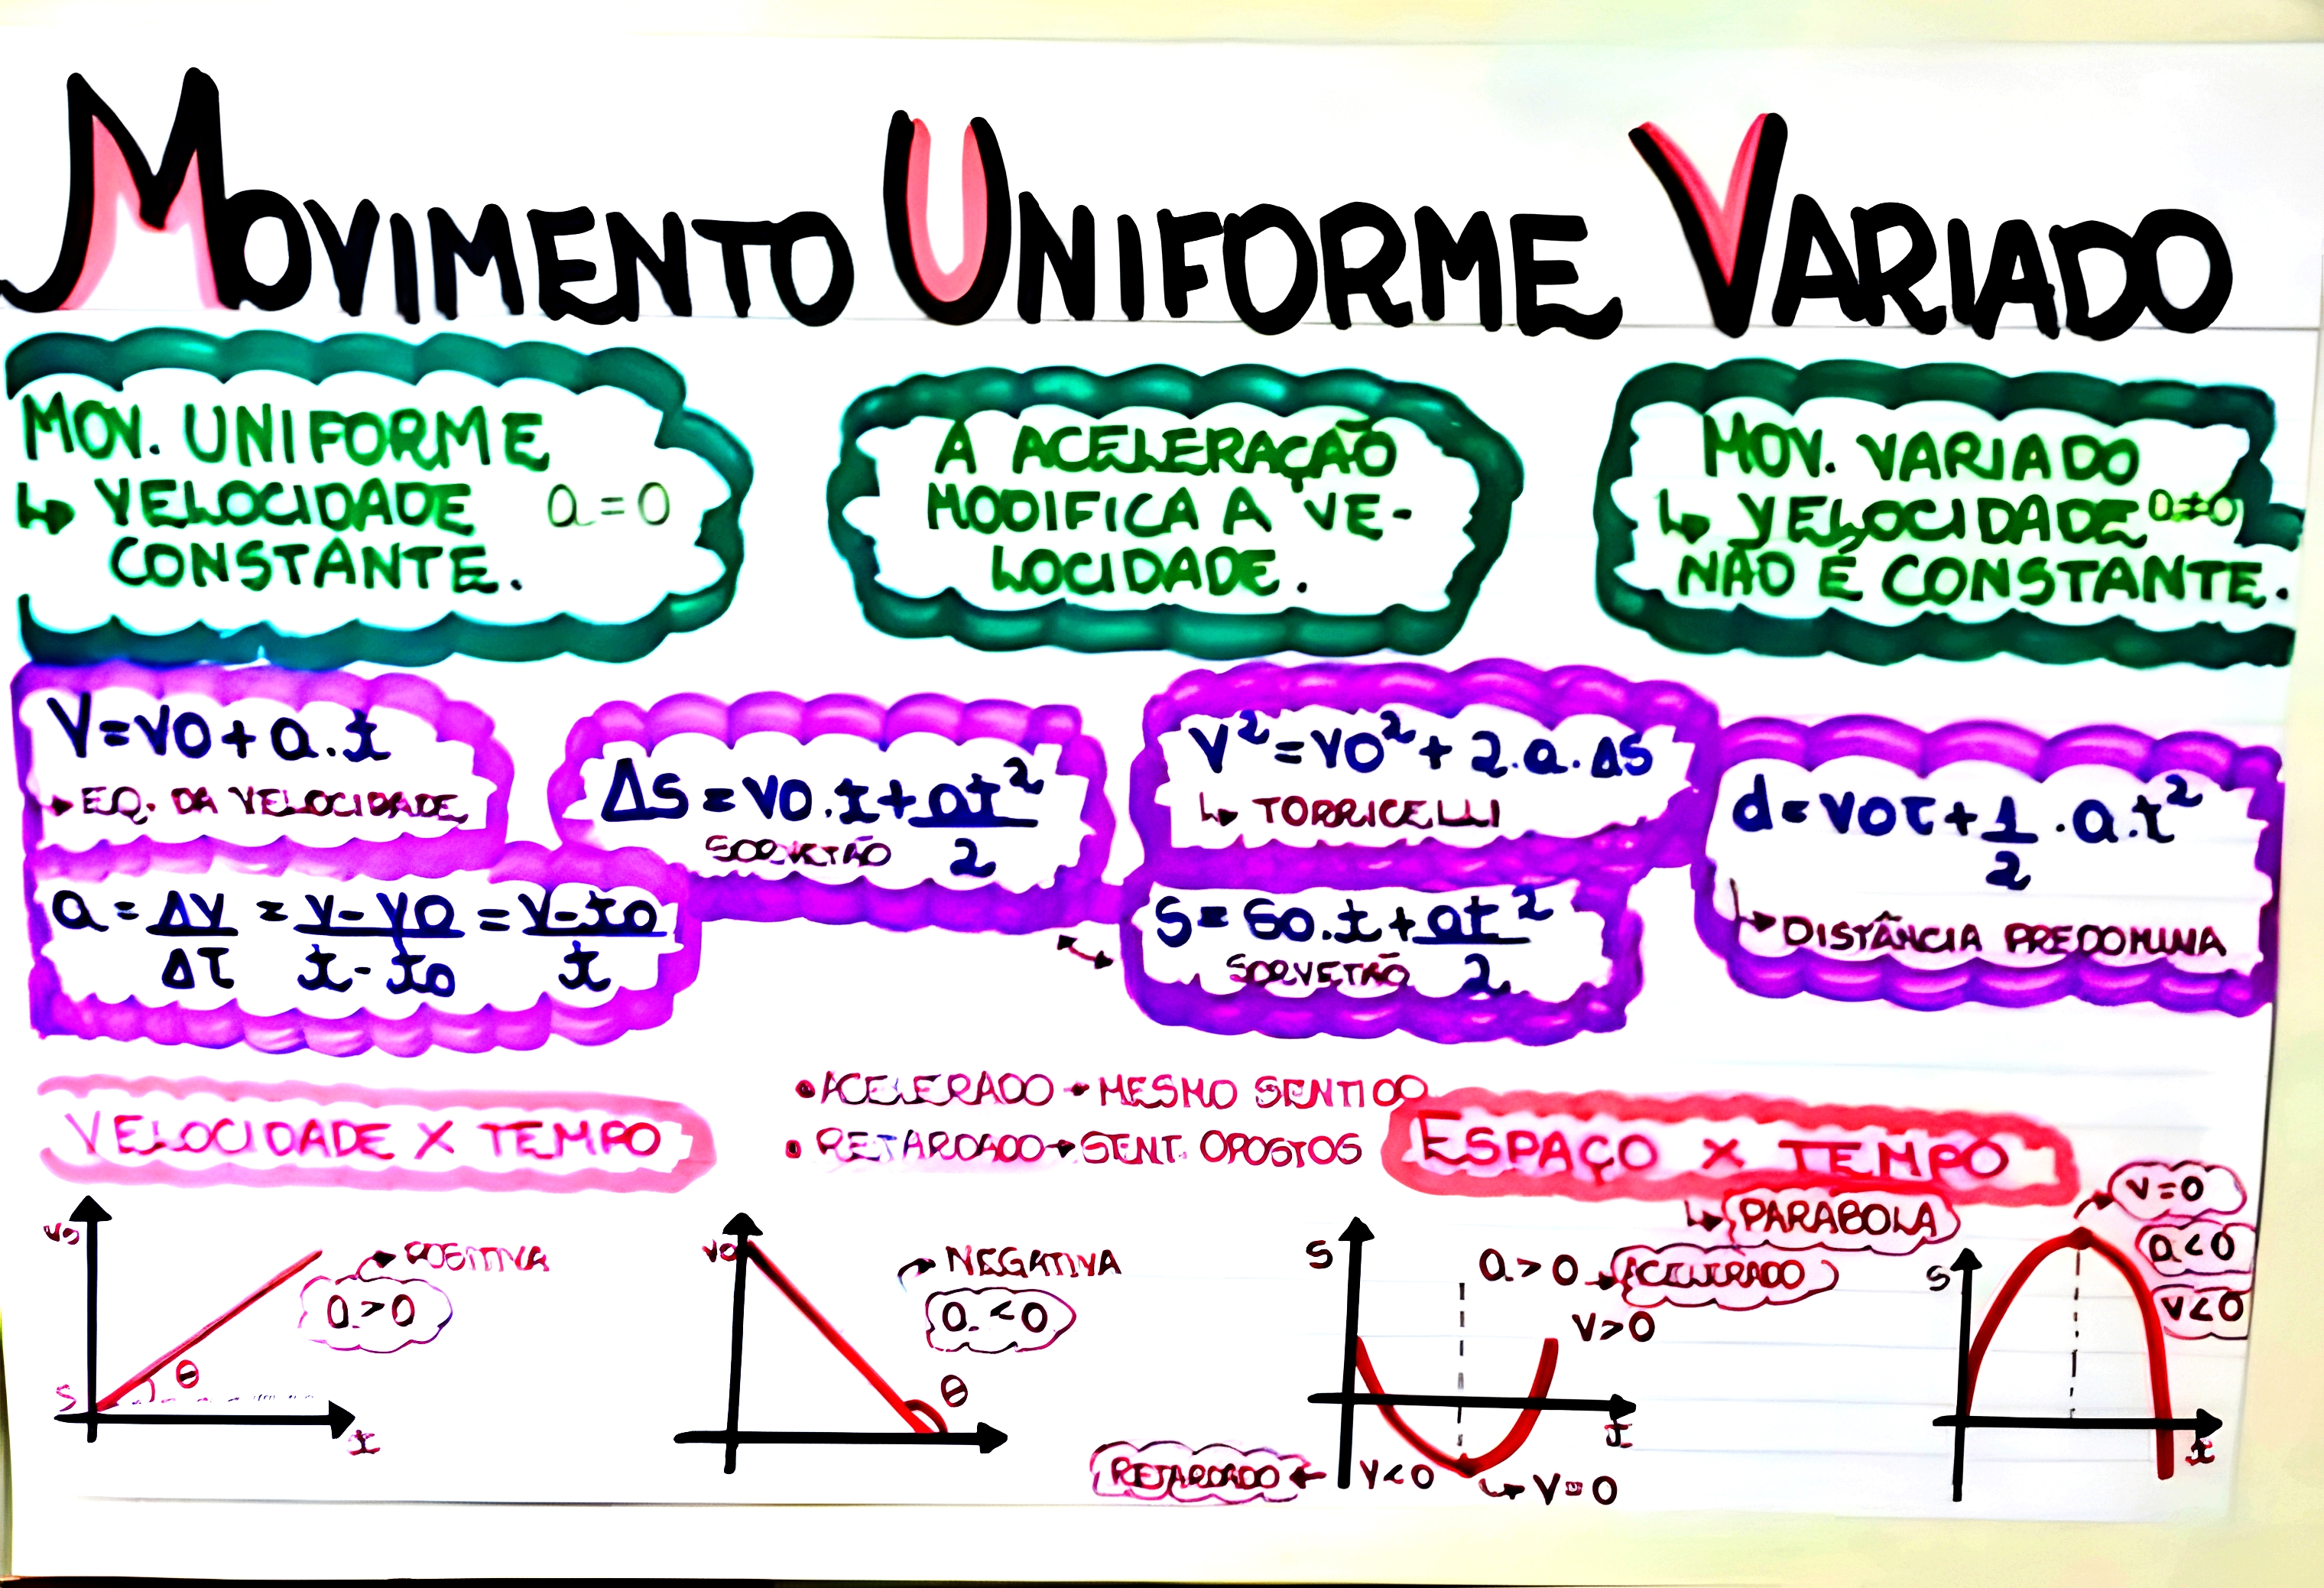 MOVIMENTO UNIFORME VARIADO
MOV. UNIFORME
↳ VELOCIDADE a = 0
CONSTANTE.
A ACELERAÇÃO
MODIFICA A VE-
LOCIDADE.
MOV. VARIADO
↳ VELOCIDADE a≠0
NÃO É CONSTANTE.
V = V0 + a.t
→ EQ. DA VELOCIDADE
ΔS = V0.t + at²/2
SORVETÃO
V² = V0² + 2.a.ΔS
↳ TORRICELLI
d = V0t + 1/2 .a.t²
↳ DISTÂNCIA PREDOMINA
a = ΔV/Δt = V-V0/t-t0 = V-t0/t
S = S0.t + at²/2
SORVETÃO
VELOCIDADE X TEMPO
• ACELERADO → MESMO SENTIDO
• RETARDADO → SENT. OPOSTOS
ESPAÇO X TEMPO
↳ PARABOLA
POSITIVA
a > 0
θ
S
t
V0
NEGATIVA
a. < 0
θ
S
a > 0 → ACELERADO
V > 0
t
RETARDADO ← V < 0
↳ V = 0
V = 0
a < 0
V < 0
S
t